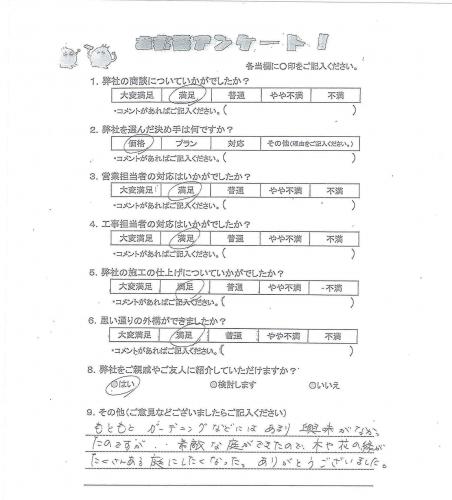 お客様アンケート!
各当欄に○印をご記入ください。
1. 弊社の商談についていかがでしたか?
大変満足 満足 普通 やや不満 不満
・コメントがあればご記入ください。( )
2. 弊社を選んだ決め手は何ですか?
価格 プラン 対応 その他(理由をご記入ください。)
・コメントがあればご記入ください。( )
3. 営業担当者の対応はいかがでしたか?
大変満足 満足 普通 やや不満 不満
・コメントがあればご記入ください。( )
4. 工事担当者の対応はいかがでしたか?
大変満足 満足 普通 やや不満 不満
・コメントがあればご記入ください。( )
5. 弊社の施工の仕上げについていかがでしたか?
大変満足 満足 普通 やや不満 不満
・コメントがあればご記入ください。( )
6. 思い通りの外構ができましたか?
大変満足 満足 普通 やや不満 不満
・コメントがあればご記入ください。( )
8. 弊社をご親戚やご友人に紹介していただけますか?
◎はい ◎検討します ◎いいえ
9. その他(ご意見などございましたらご記入ください)
もともと ガーデニングなどには あまり 興味がなかっ
たのですが・・素敵な庭ができたので、木や花の緑が
たくさんある庭にしたくなった。ありがとうございました。